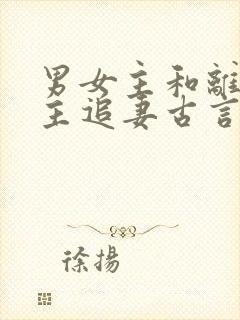 男女主和離
主追妻古言
徐揚